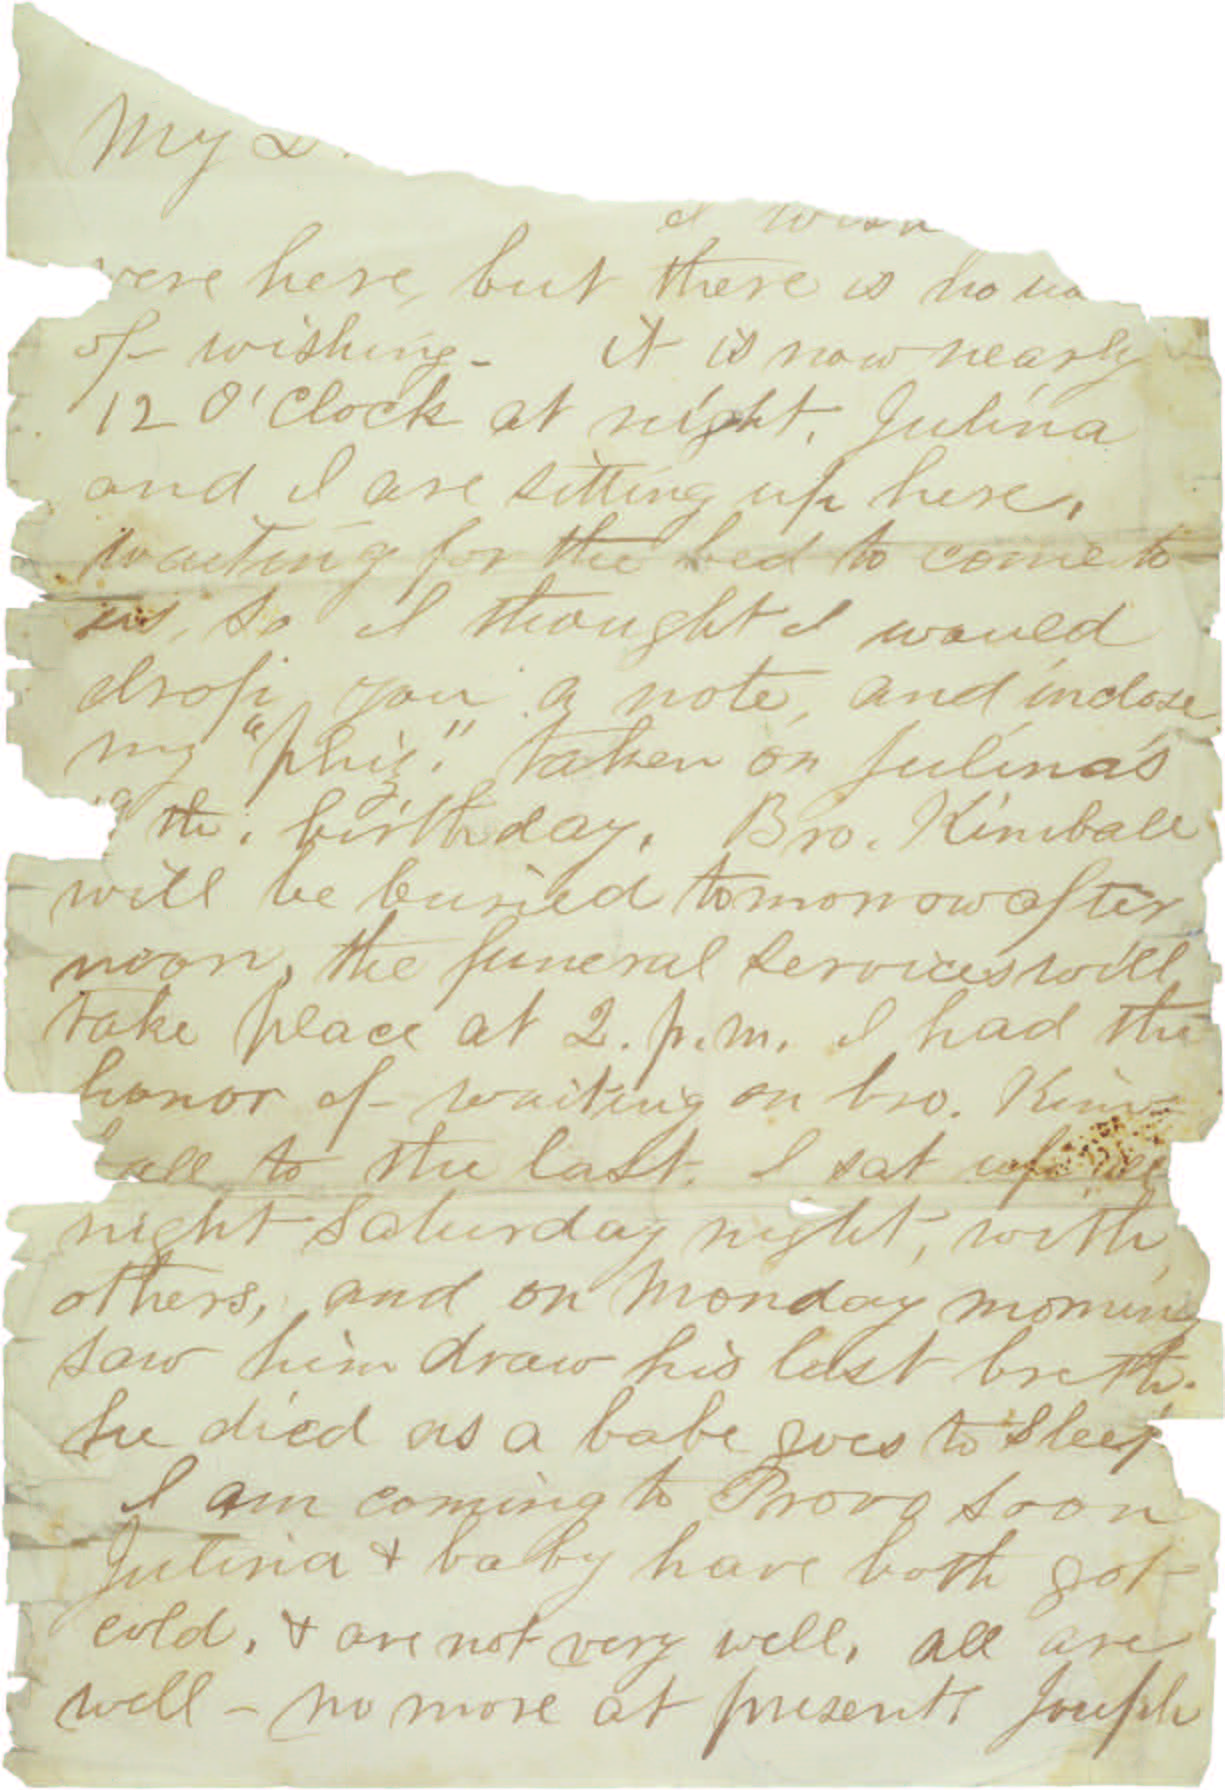 My D
I wish
were here, but there is no us
of wishing - it is now nearly
12 O'Clock at night. Julina
and I are sitting up here,
waiting for the bed to come to
us, so I thought I would
drop you a note, and inclose
my "phiz." taken on Julina's
th. birthday. Bro. Kimball
will be buried tomorrow after
noon, the funeral services will
take place at 2. p.m. I had the
honor of waiting on bro. Kim-
ball to the last. I sat up all
night Saturday night, with
others, and on Monday morning
saw him draw his last breth.
he died as a babe goes to sleep
I am coming to Provo soon
Julina & baby have both got
cold, & are not very well, all are
well - no more at present Joseph